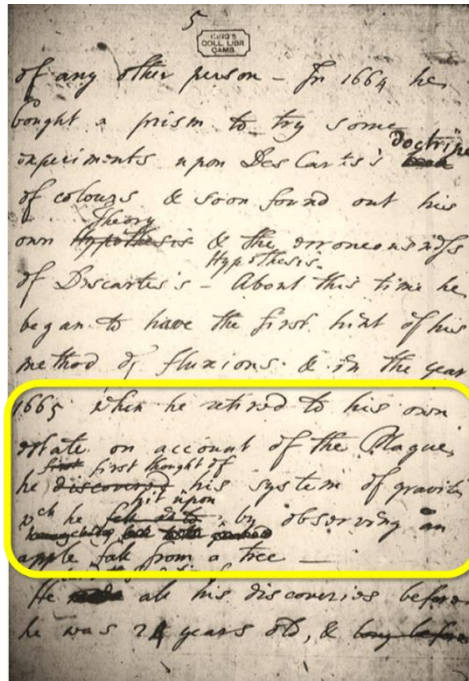 5
KING'S
COLL. LIBR
CAMB.
of any other person – In 1664 he
bought a prism to try some
doctrine
experiments upon DesCartes's
of colours & soon found out his
Theory
own Hypothesis & the erroneousness
Hypothesis.
of Descartes's – About this time he
began to have the first hint of his
method of fluxions & in the year
1665 when he retired to his own
estate on account of the Plague,
first thought of
he discovered his system of gravity
hit upon
wch he by observing an
apple fall from a tree —
He all his discoveries before
he was 24 years old, & before